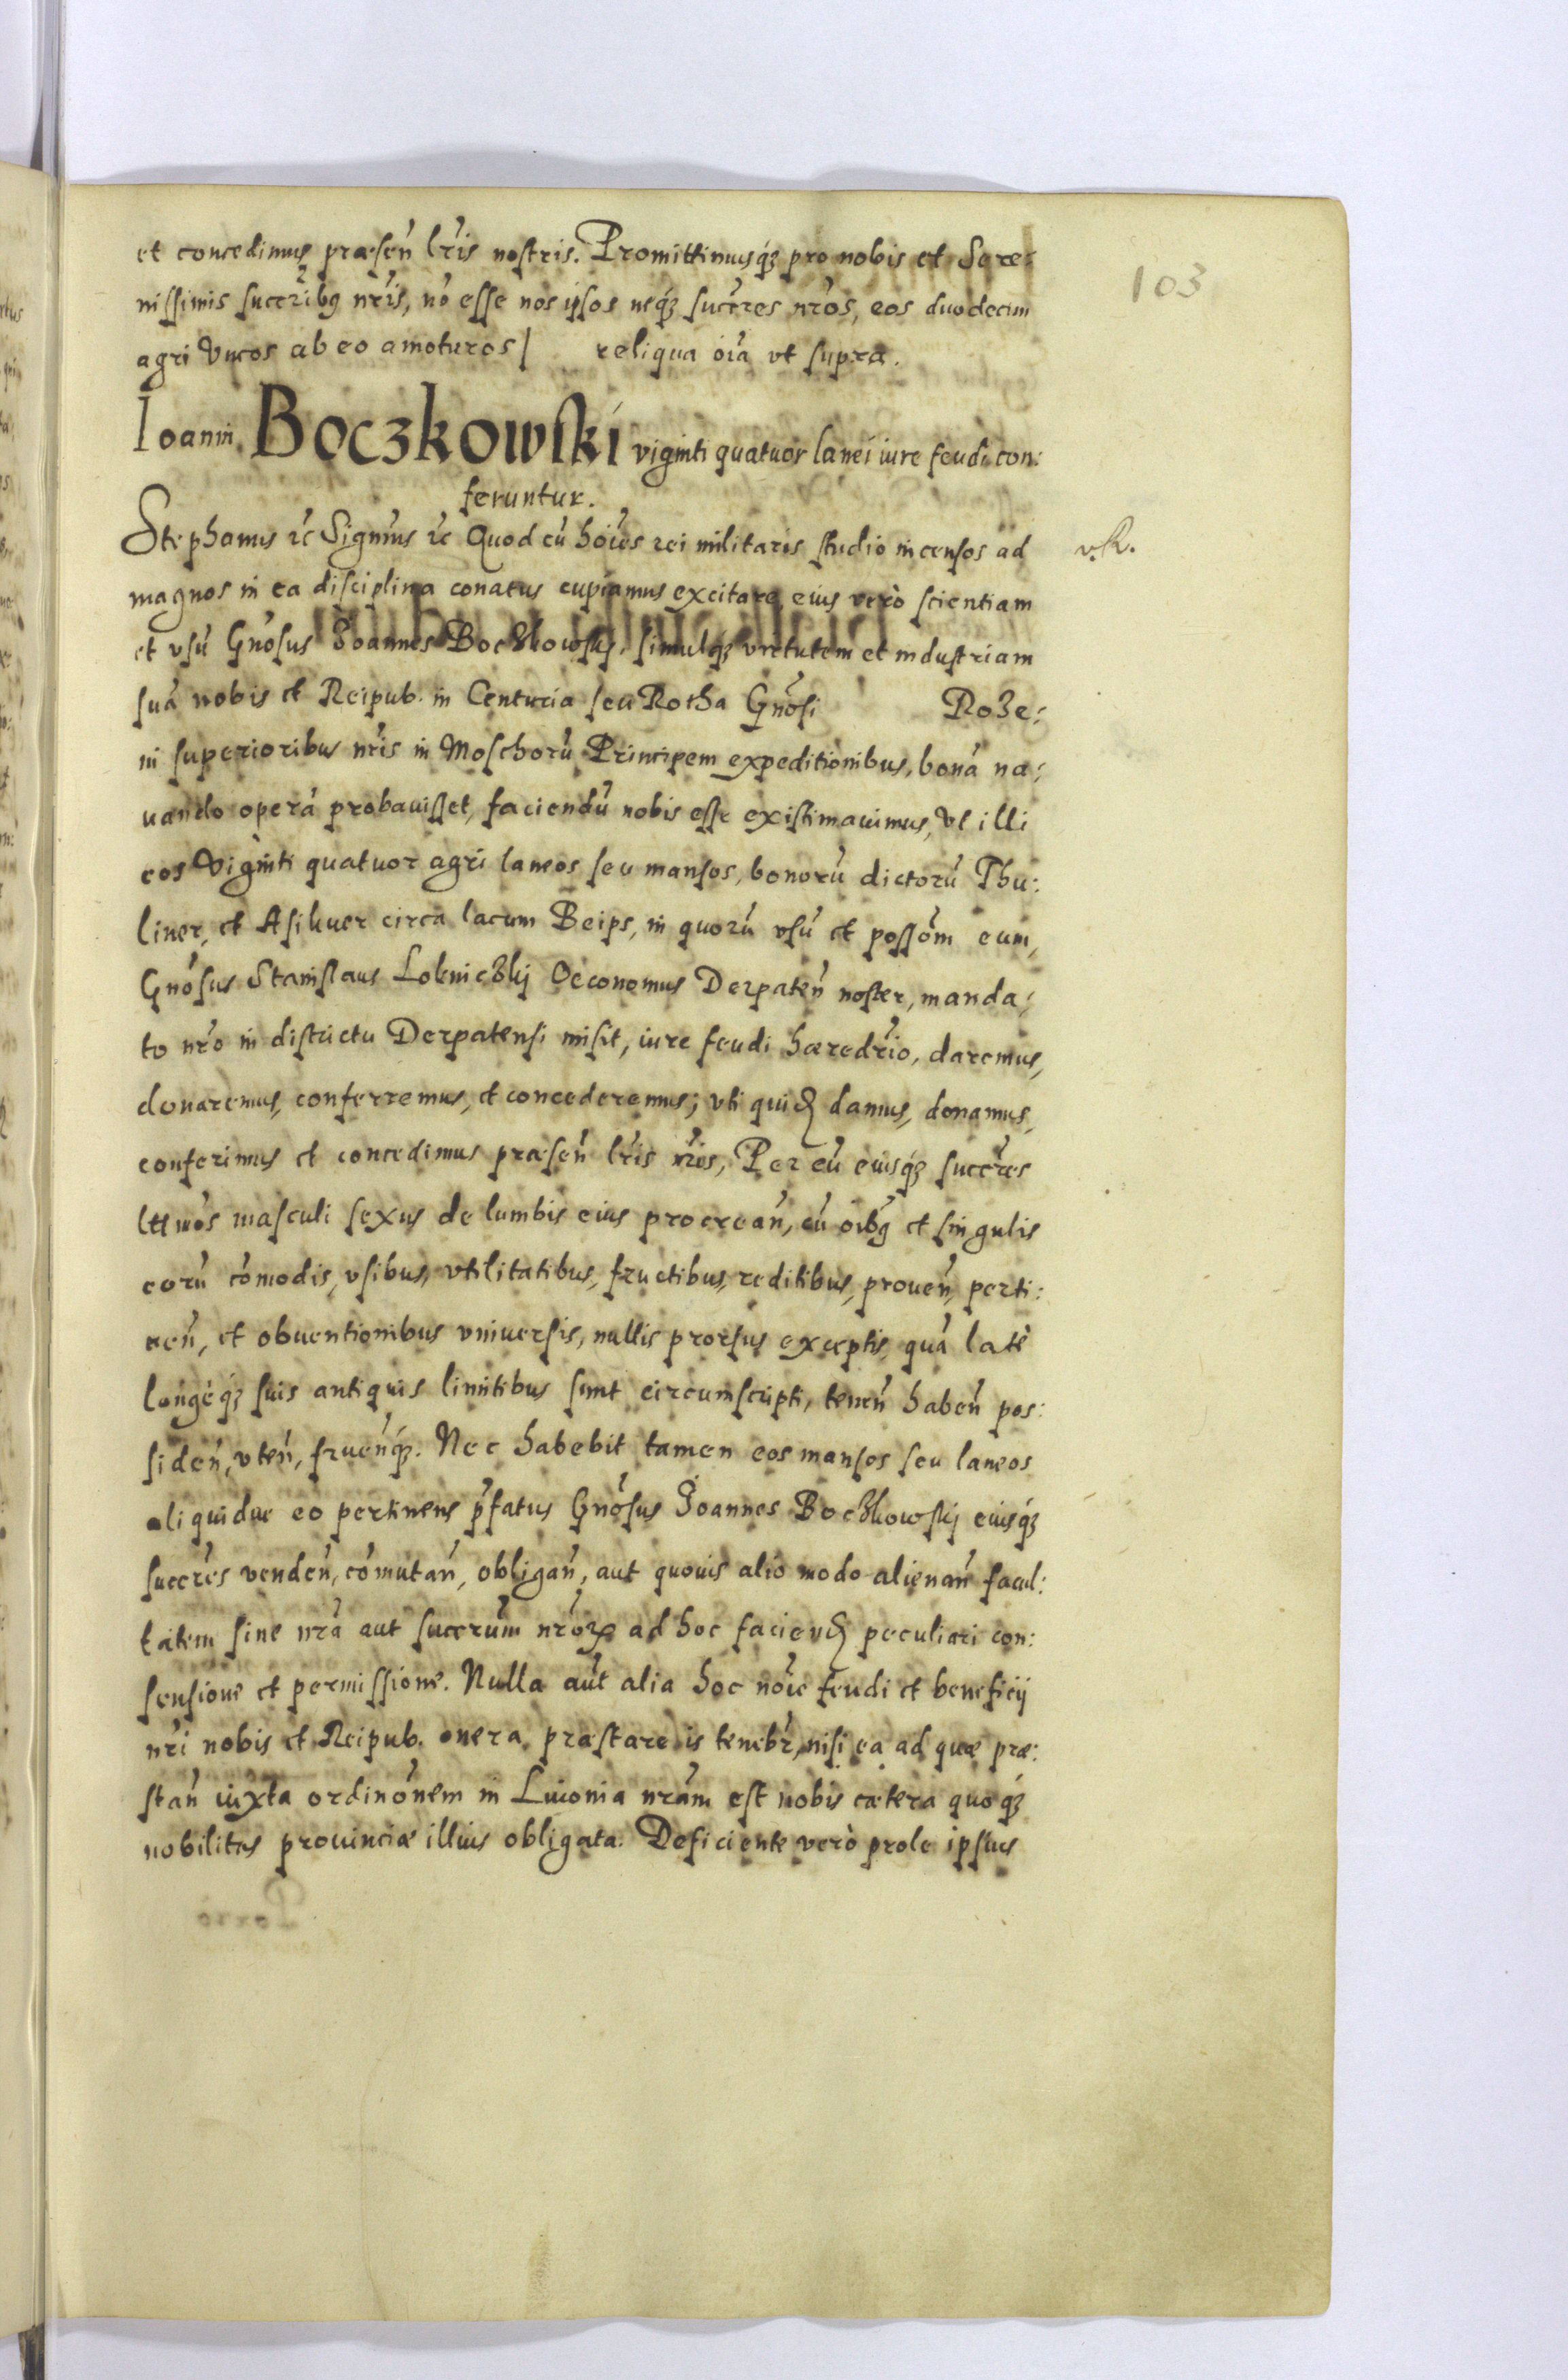 et concedimus præsen̄ lr̄is nostris. Promittimusq́ꝫ pro nobis et Sere:
nissimis succr̄ibꝯ nr̄is, nō esse nos ipsos neq́ꝫ succr̄es nr̄os, eos duodecim
agri Vncos ab eo amoturos / reliqua oīa vt supra.
103
Ioanni Boczkowski viginti quatuor lanei iure feudi con:
feruntur.
Stephanus ꝛc̄ Signm̄us ꝛc̄ Quod cū hoīes rei militaris studio incensos ad
magnos in ea disciplina conatus cupiamus excitare, eius verò scientiam
et vsū Gn̄osus Joannes Boczkowskj, simulq́ꝫ virtutem et industriam
suā nobis et Reipub. in Centuria seu Rotha Gn̄osi Roze:
in superioribus nr̄is in Moschorū Principem expeditionibus, bonā na:
uando operā probauisset, faciendū nobis esse existimauimus, Vt illi
eos Viginti quatuor agri laneos seu mansos, bonorū dictorū Thu:
liner, et Asikuer circa lacum Beips, in quorū vsū et possōm eum,
Gn̄osus Stanislaus Lokniczkj Oeconomus Derpaten̄ noster, manda:
to nr̄o in districtu Derpatensi misit, iure feudi hæredr̄io, daremus,
donaremus, conferremus, et concederemus; vti quiđ damus, donamus,
conferimus et concedimus præsen̄ lr̄is nr̄is, Per eū eiusq́ꝫ succr̄es
lttmōs masculi sexus de lumbis eius procrean̄, cū oībꝯ et singulis
eorū cōmodis, vsibus, vtilitatibus, fructibus, reditibus, prouen̄, perti:
nen̄, et obuentionibus vniuersis, nullis prorsus exceptis, quā latè
longèq́ꝫ suis antiquis limitibus sunt circumscripti, tenen̄ haben̄ pos:
siden̄, vten̄, fruen̄q́ꝫ. Nec habebit tamen eos mansos seu laneos
aliquidue eo pertinens p̄fatus Gn̄osus Joannes Boczkowskj eiusq́ꝫ
succr̄es venden̄, cōmutan̄, obligan̄, aut quouis alio modo alienan̄ facul:
tatem sine nr̄a aut succr̄um nr̄oꝝ ad hoc faciendꝭ peculiari con:
sensione et permissione. Nulla aūt alia hoc noīe feudi et beneficij
nr̄i nobis et Reipub. onera præstare is tenebr̄, nisi ea ad quæ præ:
stan̄ iuxta ordinōnem in Liuonia nr̄am est nobis cætera quoq́ꝫ
nobilitas prouinciæ illius obligata. Deficiente verò prole ipsius